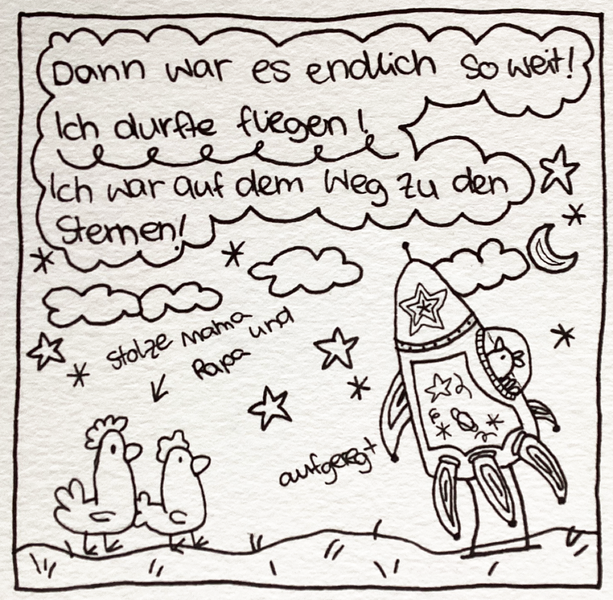 Dann war es endlich so weit!
Ich durfte fliegen!
Ich war auf dem Weg zu den
Sternen!
Stolze Mama und
Papa
aufgeregt